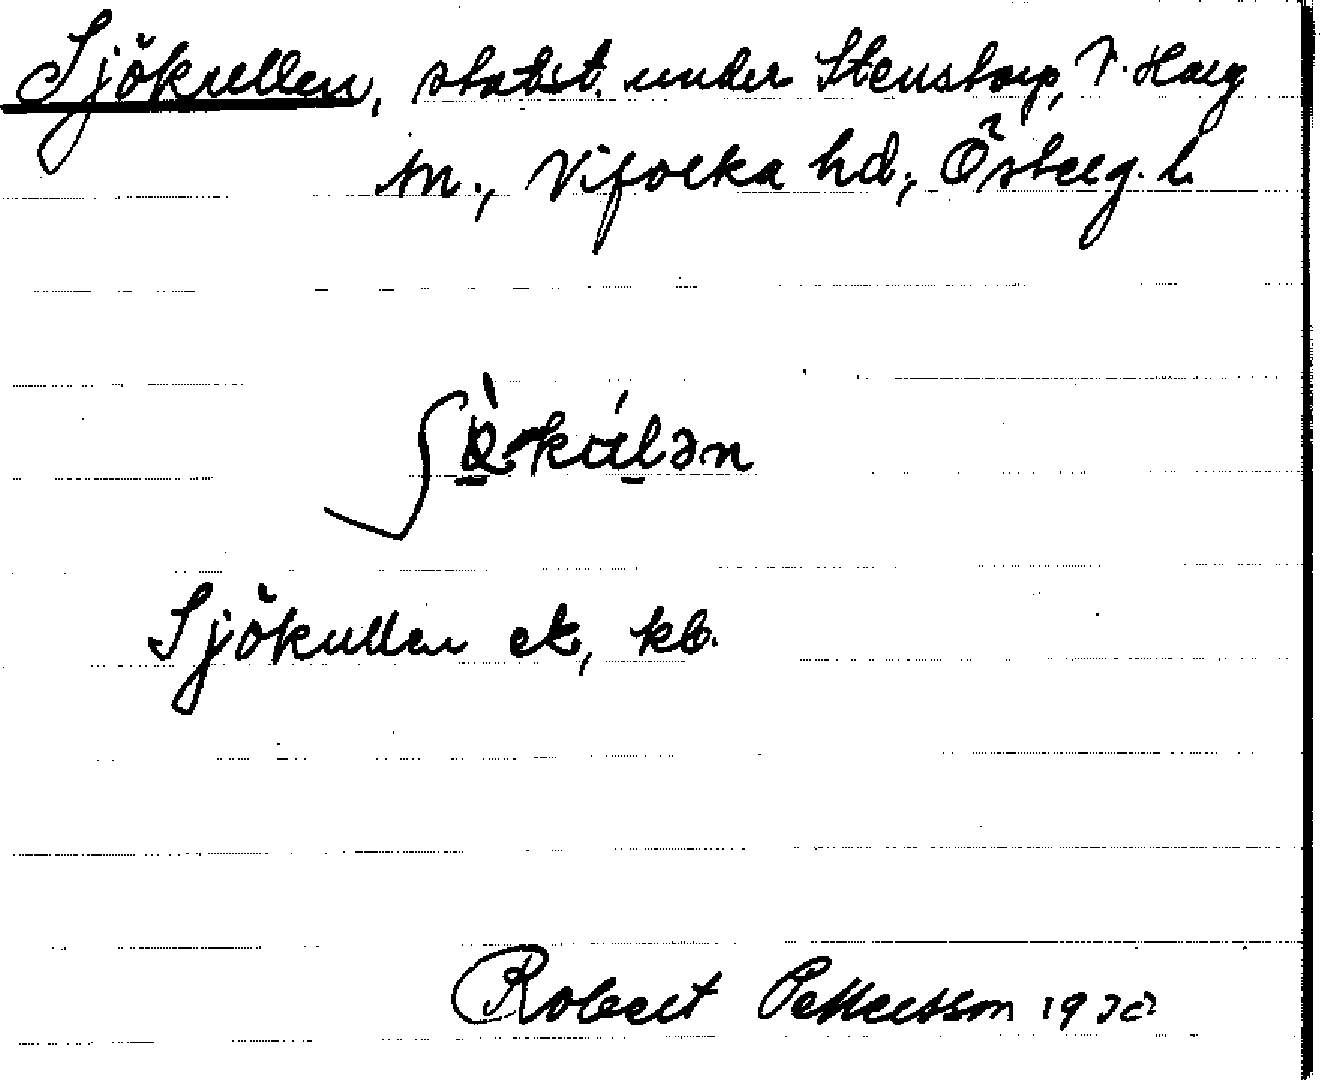 Sjökullen, statst. under Stenstorp, V. Harg
sn., Vifolka hd., Österg. l.
Sjökullen ek, kb.
Robert Pettersson